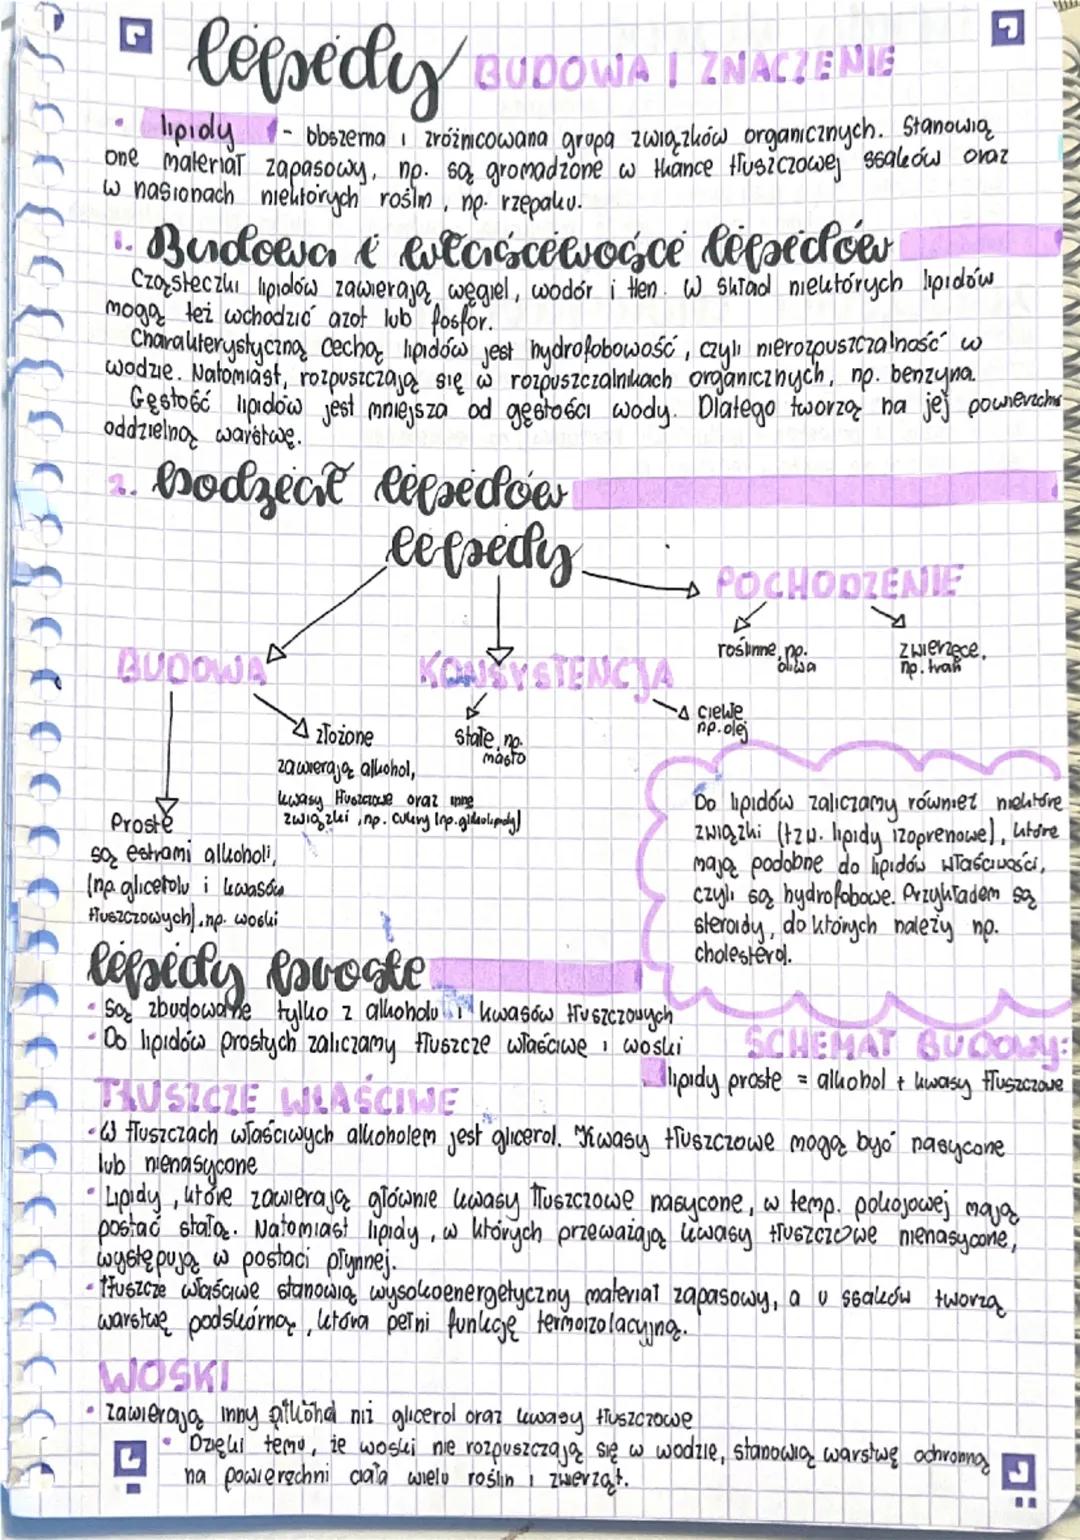 lipidy BUDOWA I ZNACZENIE
• lipidy - obszerna i zróżnicowana grupa związków organicznych. Stanowią
one materiał zapasowy, np. są gromadzone w tkance tłuszczowej ssaków oraz
w nasionach niektórych roślin, np. rzepaku.
1. Budowa i właściwości lipidów
Cząsteczki lipidów zawierają węgiel, wodór i tlen. W skład niektórych lipidów
mogą też wchodzić azot lub fosfor.
Charakterystyczną cechą lipidów jest hydrofobowość, czyli nierozpuszczalność w
wodzie. Natomiast, rozpuszczają się w rozpuszczalnikach organicznych, np. benzyna.
Gęstość lipidów jest mniejsza od gęstości wody. Dlatego tworzą na jej powierzchni
oddzielną warstwę.
2. Podział lipidów
lipidy
POCHODZENIE
roślinne, np.
oliwa
zwierzęce,
np. tran
BUDOWA
KONSYSTENCJA
złożone
zawierają alkohol,
kwasy tłuszczowe oraz inne
związki, np. cukry (np. glikolipidy)
stałe, np.
masło
ciekłe
np. olej
Proste
są estrami alkoholi,
(np. glicerolu i kwasów
tłuszczowych), np. woski
Do lipidów zaliczamy również niektóre
związki (tzw. lipidy izoprenowe), które
mają podobne do lipidów właściwości,
czyli są hydrofobowe. Przykładem są
steroidy, do których należy np.
cholesterol.
lipidy proste
• Są zbudowane tylko z alkoholu i kwasów tłuszczowych
• Do lipidów prostych zaliczamy tłuszcze właściwe i woski
SCHEMAT BUDOWY:
lipidy proste = alkohol + kwasy tłuszczowe
TŁUSZCZE WŁAŚCIWE
• W tłuszczach właściwych alkoholem jest glicerol. Kwasy tłuszczowe mogą być nasycone
lub nienasycone
• Lipidy, które zawierają głównie kwasy tłuszczowe nasycone, w temp. pokojowej mają
postać stałą. Natomiast lipidy, w których przeważają kwasy tłuszczowe nienasycone,
występują w postaci płynnej.
• tłuszcze właściwe stanowią wysokoenergetyczny materiał zapasowy, a u ssaków tworzą
warstwę podskórną, która pełni funkcję termoizolacyjną.
WOSKI
• zawierają inny alkohol niż glicerol oraz kwasy tłuszczowe
• Dzięki temu, że woski nie rozpuszczają się w wodzie, stanowią warstwę ochronną
na powierzchni ciała wielu roślin i zwierząt.